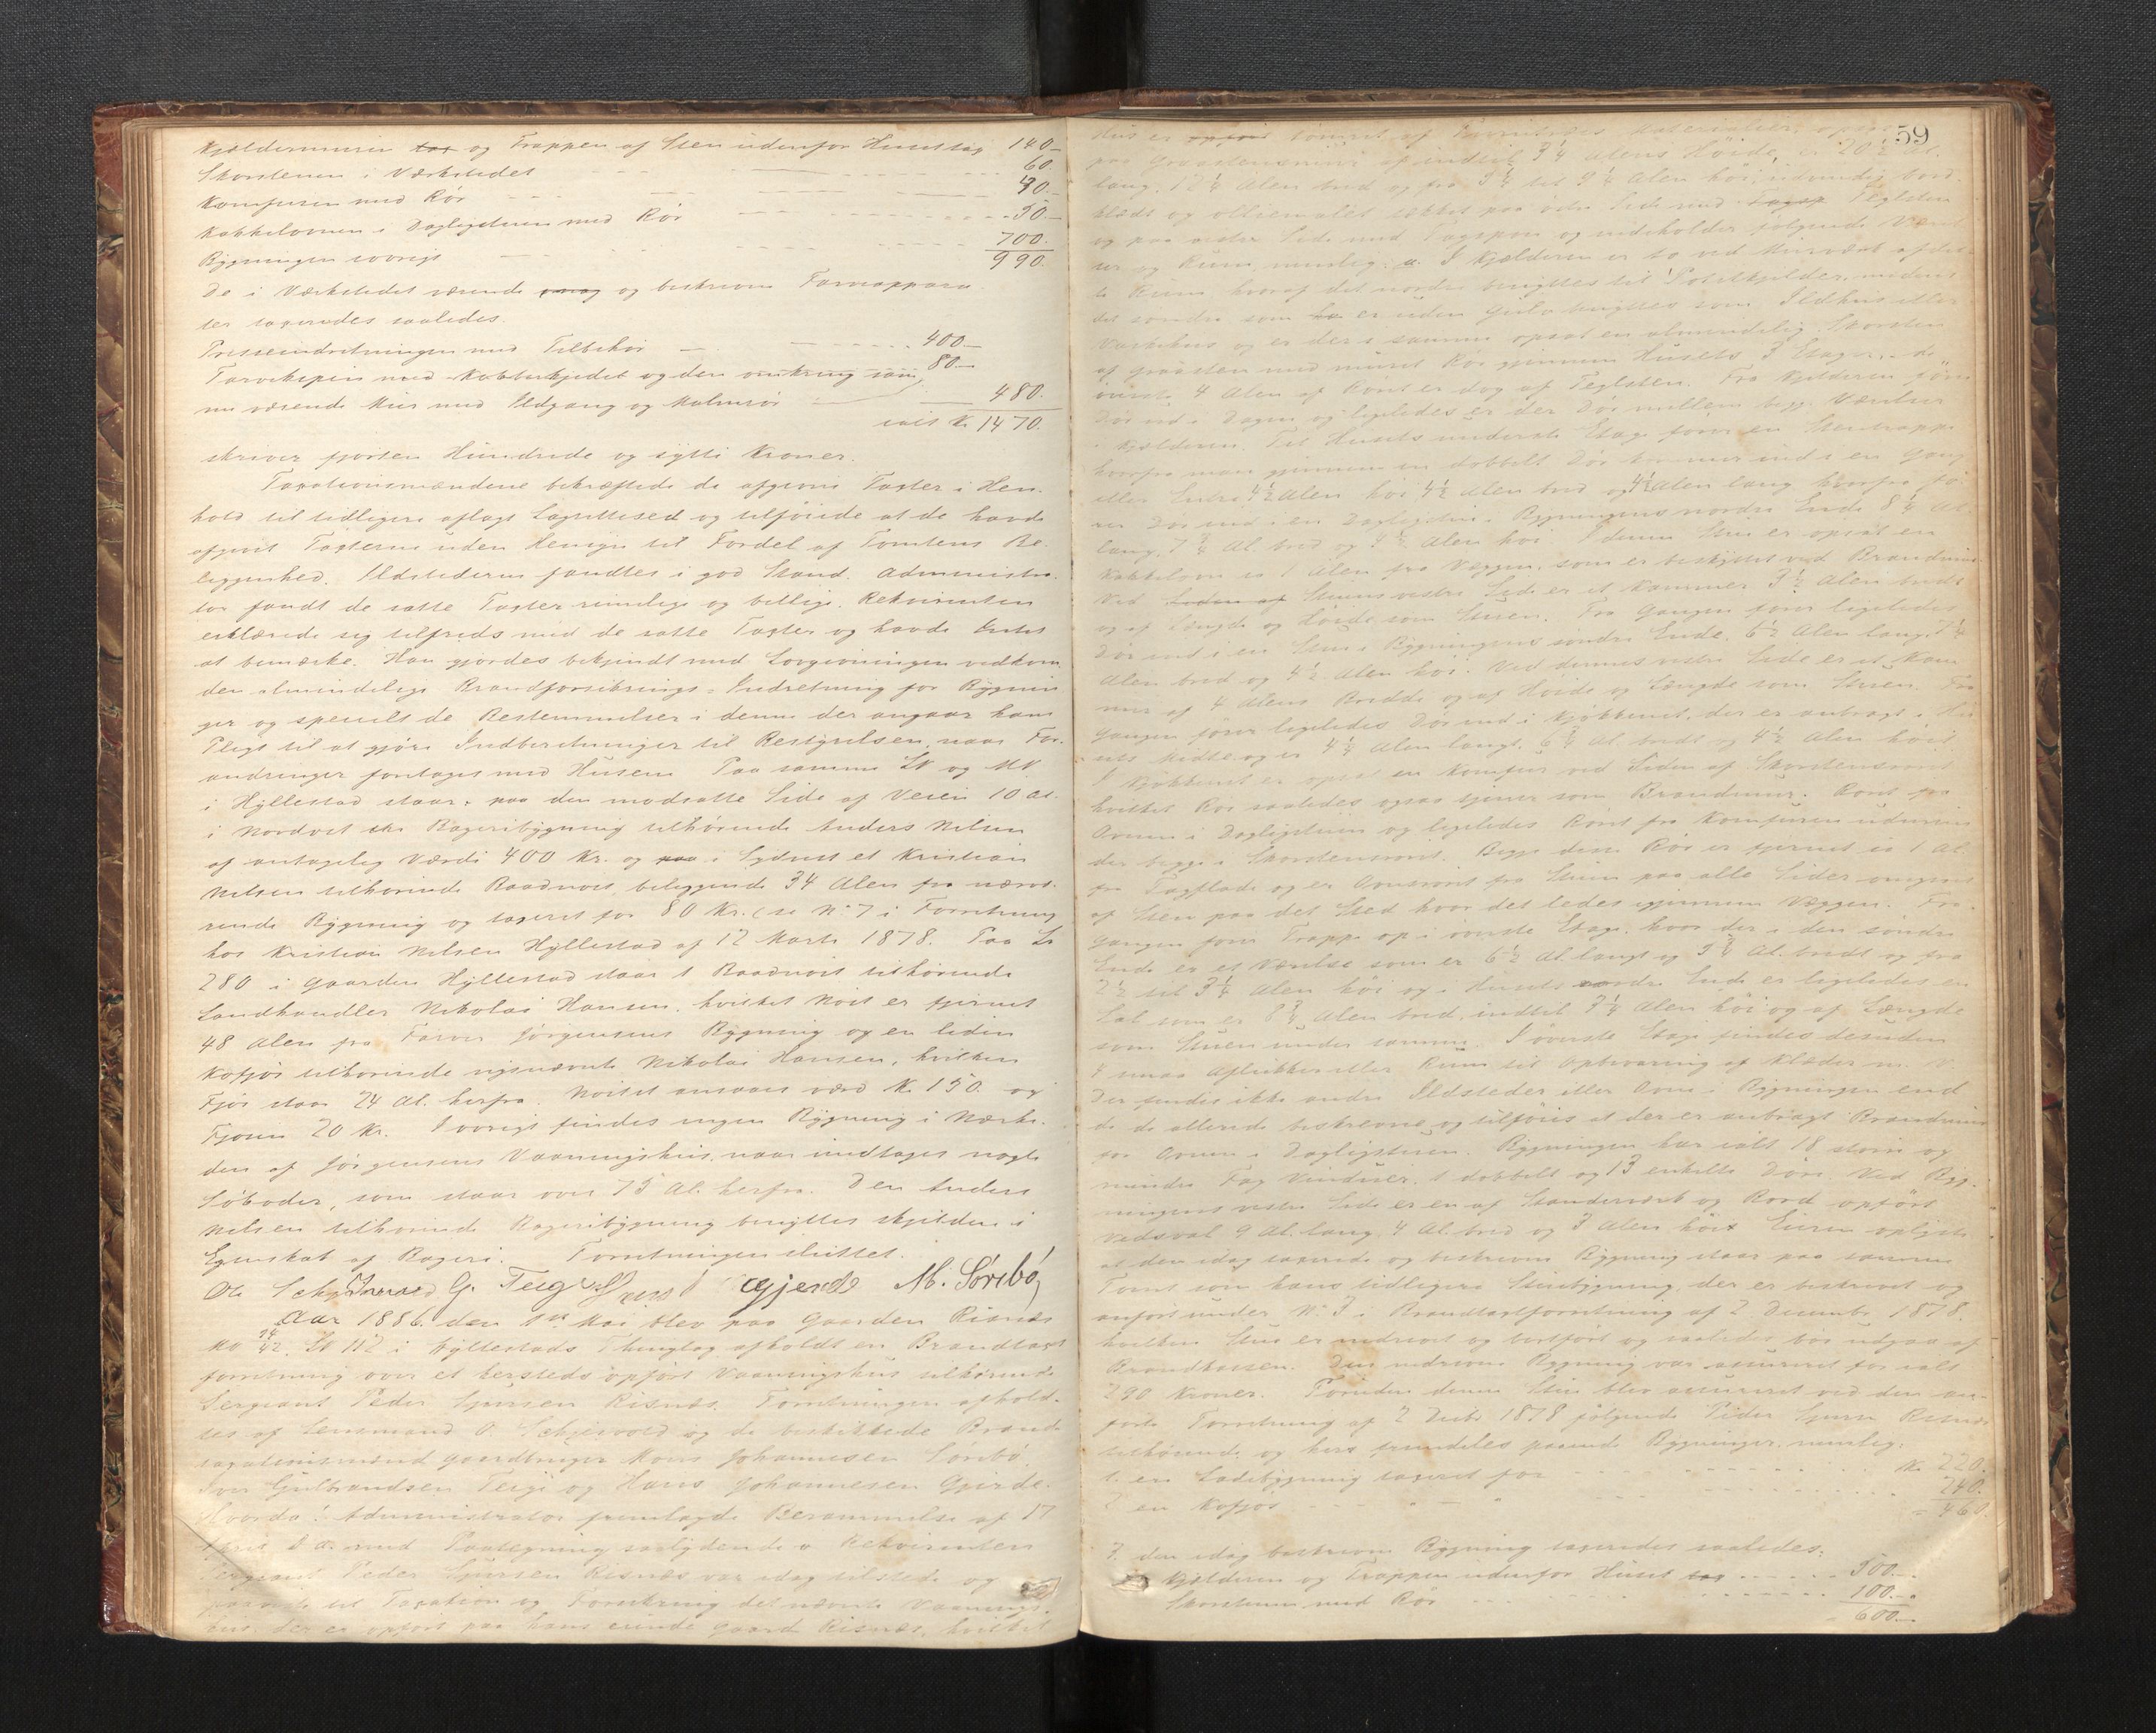 Kjældermuren tax og Trappen af Sten udenfor Huset tax 140–
Skorstenen i Værkstedet 60.
Komfuren med Rør 40.–
Kakkelovnen i Dagligstuen med Rør 50.–
Bygningen iøvrigt 700.
990.
De i Værkstedet værende og beskrevne Farveappara-
ter taxeredes saaledes.
Presseindretningen med Tilbehør 400–
Farvekipen med Kobberkjedel og den omkring samme
nu værende Mur med Ildgang og Malmrør 80– 480.
ialt Kr 1470.
skriver fjorten Hundrede og sytti Kroner.
Taxationsmændene bekræftede de afgivne Taxter i Hen-
hold til tidligere aflagt Lagrettesed og tilføiede at de havde
afgivet Taxterne uden Hensyn til Fordel af Tomtens Be-
liggenhed. Ildstederne fandtes i god Stand. Administra-
tor fandt de satte Taxter rimelige og billige. Rekvirenten
erklærede sig tilfreds med de satte Taxter og havde Intet
at bemærke. Han gjordes bekjendt med Lovgivningen vedkom.
den almindelige Brandforsikrings-Indretning for Bygnin
ger og specielt de Bestemmelser i denne der angaar hans
Pligt til at gjøre Indberetninger til Bestyrelsen, naar For-
andringer foretages med Husene. Paa samme LN og MN
i Hyllestad staar, paa den modsatte Side af Veien 10 Al.
i Nordvest en Bageribygning tilhørende Anders Nilsen
af antagelig Værdi 400 Kr. og paa i Sydvest et Kristian
Nilsen tilhørende Baadnøst, beliggende 34 Alen fra nærvæ-
rende Bygning og taxeret for 80 Kr. (se No 7 i Forretning
hos Kristian Nilsen Hyllestad af 12 Marts 1878. Paa L
280 i Gaarden Hyllestad staar 1 Baadnøst tilhørende
Landhandler Nikolai Hansen, hvilket Nøst er fjernet
48 Alen fra Farver Jørgensens Bygning og en liden
Kofjøs tilhørende nysnævnte Nikolai Hansen, hvilken
Fjøs staar 24 Al. herfra. Nøstet ansaaes værd Kr. 150. og
Fjøsen 20 Kr. Iøvrigt findes ingen Bygning i Nærhe-
den af Jørgensens Vaaningshus, naar undtages nogle
Søboder, som staar over 75 Al. herfra. Den Anders
Nilsen tilhørende Bageribygning benyttes skjelden i
Egenskab af Bageri. Forretningen sluttet.
O. Iver G. Teige Gjerde M. Sørebø
Aar 1886 den 1ste Mai blev paa Gaarden Risnæs
LN 112 i Hyllestads Thinglag afholdt en Brandtaxt
forretning over et hersteds opført Vaaningshus tilhørende
Sergeant Peder Sjursen Risnæs. Forretningen afhold-
tes af Lensmand O. og de beskikkede Brand-
taxationsmænd Gaardbruger Mons Johannesen Sørebø,
Iver Gulbrandsen Teige og Hans Johannesen Gjerde.
Hvorda: Administrator fremlagde Berammelse af 17
April d. A. med Paategning saalydende. Rekvirenten
Sergeant Peder Sjursen Risnæs var idag tilstede og
til Taxation og Forsikring det nævnte Vaanings-
hus, der er opført paa hans eiende Gaard Risnæs, hvilket
59
Hus er opført tømret af Materialier, opsat
paa Graastensmur af indtil 3 1/4 Alens Høide, er 20 1/2 Al.
lang, 12 1/4 Alen bred og fra 3 1/4 til 9 1/4 Alen høi, udvendig bord-
klædt og oliemalet tækket paa østre Side med Teglsten
og paa vestre Side med Tagspon og indeholder følgende Værel-
ser og Rum, nemlig: a. I Kjælderen er to ved Murværk afdel-
te Rum hvoraf det nordre benyttes til Potetkjelder, medens
det søndre som er uden Gulv benyttes som Ildhus eller
Vaskehus og er der i samme opsat en almindelig Skorsten
af Graasten med muret Rør gjennem Husets 3 Etager, de
øverste 4 Alen af Røret er dog af Teglsten. Fra Kjelderen fører
Dør ud i Dagen og ligeledes er der Dør mellem begge Værelser
i Kjelderen. Til Husets underste Etage fører en Stentrappe
hvorfra man gjennem en dobbelt Dør kommer ind i en Gang
eller Entre 4 1/2 Alen høi 4 1/2 Alen bred og 4 1/2 Alen lang herfra fø-
rer Dør ind i en Dagligstue i Bygningens nordre Ende 8 1/4 Al.
lang, 7 3/4 Al. bred og 4 1/2 Alen høi. I denne Stue er opsat en
Kakkelovn ca 1 Alen fra Væggen, som er beskyttet ved Brandmur
Ved Siden af Stuens vestre Side er et Kammer 3 1/2 Alen bredt
og af Længde og Høide som Stuen. Fra Gangen fører ligeledes
Dør ind i en Stue i Bygningens søndre Ende, 6 1/2 Alen lang,
Alen bred og 4 1/2 Alen høi. Ved dennes vestre Side er et Kam
mer af 4 Alens Bredde og af Høide og Længde som Stuen. Fra
Gangen fører ligeledes Dør ind i Kjøkkenet, der er anbragt i Hu-
sets Midte og er 4 1/2 Alen langt, 6 3/4 Al. bredt og 4 1/2 Alen høit
I Kjøkkenet er opsat en Komfur ved Siden af Skorstensrøret
hvilket Rør saaledes ogsaa tjener som Brandmur. Røret fra
Ovnen i Dagligstuen og ligeledes Røret fra Komfuren udmun-
der begge i Skorstensrøret. Begge disse Rør er fjernet ca 1 Al.
fra Tagflade og er Ovnsrøret fra Stuen paa alle Sider omgivet
af Sten paa det Sted hvor det ledes gjennem Væggen. Fra
Gangen fører Trappe op i øverste Etage, hvor der i den søndre
Ende er et Værelse som er 6 1/2 Al langt og 5 3/4 Al. bredt og fra
2 1/2 til 3 1/4 Alen høi og i Husets nordre Ende er ligeledes en
Sal som er 8 3/4 Alen bred, indtil 3 1/4 Alen høi og af Længde
som Stuen under samme. I øverste Etage findes desuden
4 smaa Aflukker eller Rum til Opbevaring af Klæder m. v.
Der findes ikke andre Ildsteder eller Ovne i Bygningen end
de de allerede beskrevne og tilføies at der er anbragt Brandmur
for Ovnen i Dagligstuen. Bygningen har ialt 18 større og
mindre Fag Vinduer, 1 dobbelt og 13 enkelte Døre. Ved Byg-
ningens vestre Side er en af Standerværk og Bord opført
Vedsval 9 Al. lang, 4 Al. bred og 3 Alen høi. Eieren oplyste
at den idag taxerede og beskrevne Bygning staar paa samme
Tomt som hans tidligere Stuebygning, der er beskrevet og
anført under No 3 i Brandtaxtforretning af 2 December 1878.
hvilken Stue er nedrevet og bortført og saaledes bør udgaa af
Brandkassen. Den nedrevne Bygning var assureret for ialt
290 Kroner. Foruden denne Stue blev assureret ved den an-
førte Forretning af 2 Decbr 1878 følgende Peder Sjursen Risnæs
tilhørende og hers fremdeles staaende Bygninger, nemlig:
1. en Ladebygning taxeret for Kr. 220.
2 en Kofjøs 240.
= 460.
3. den idag beskrevne Bygning taxeredes saaledes:
Kjelderen og Trappen udenfor Huset tax 500.–
Skorstenen med Rør 100.–
600.–